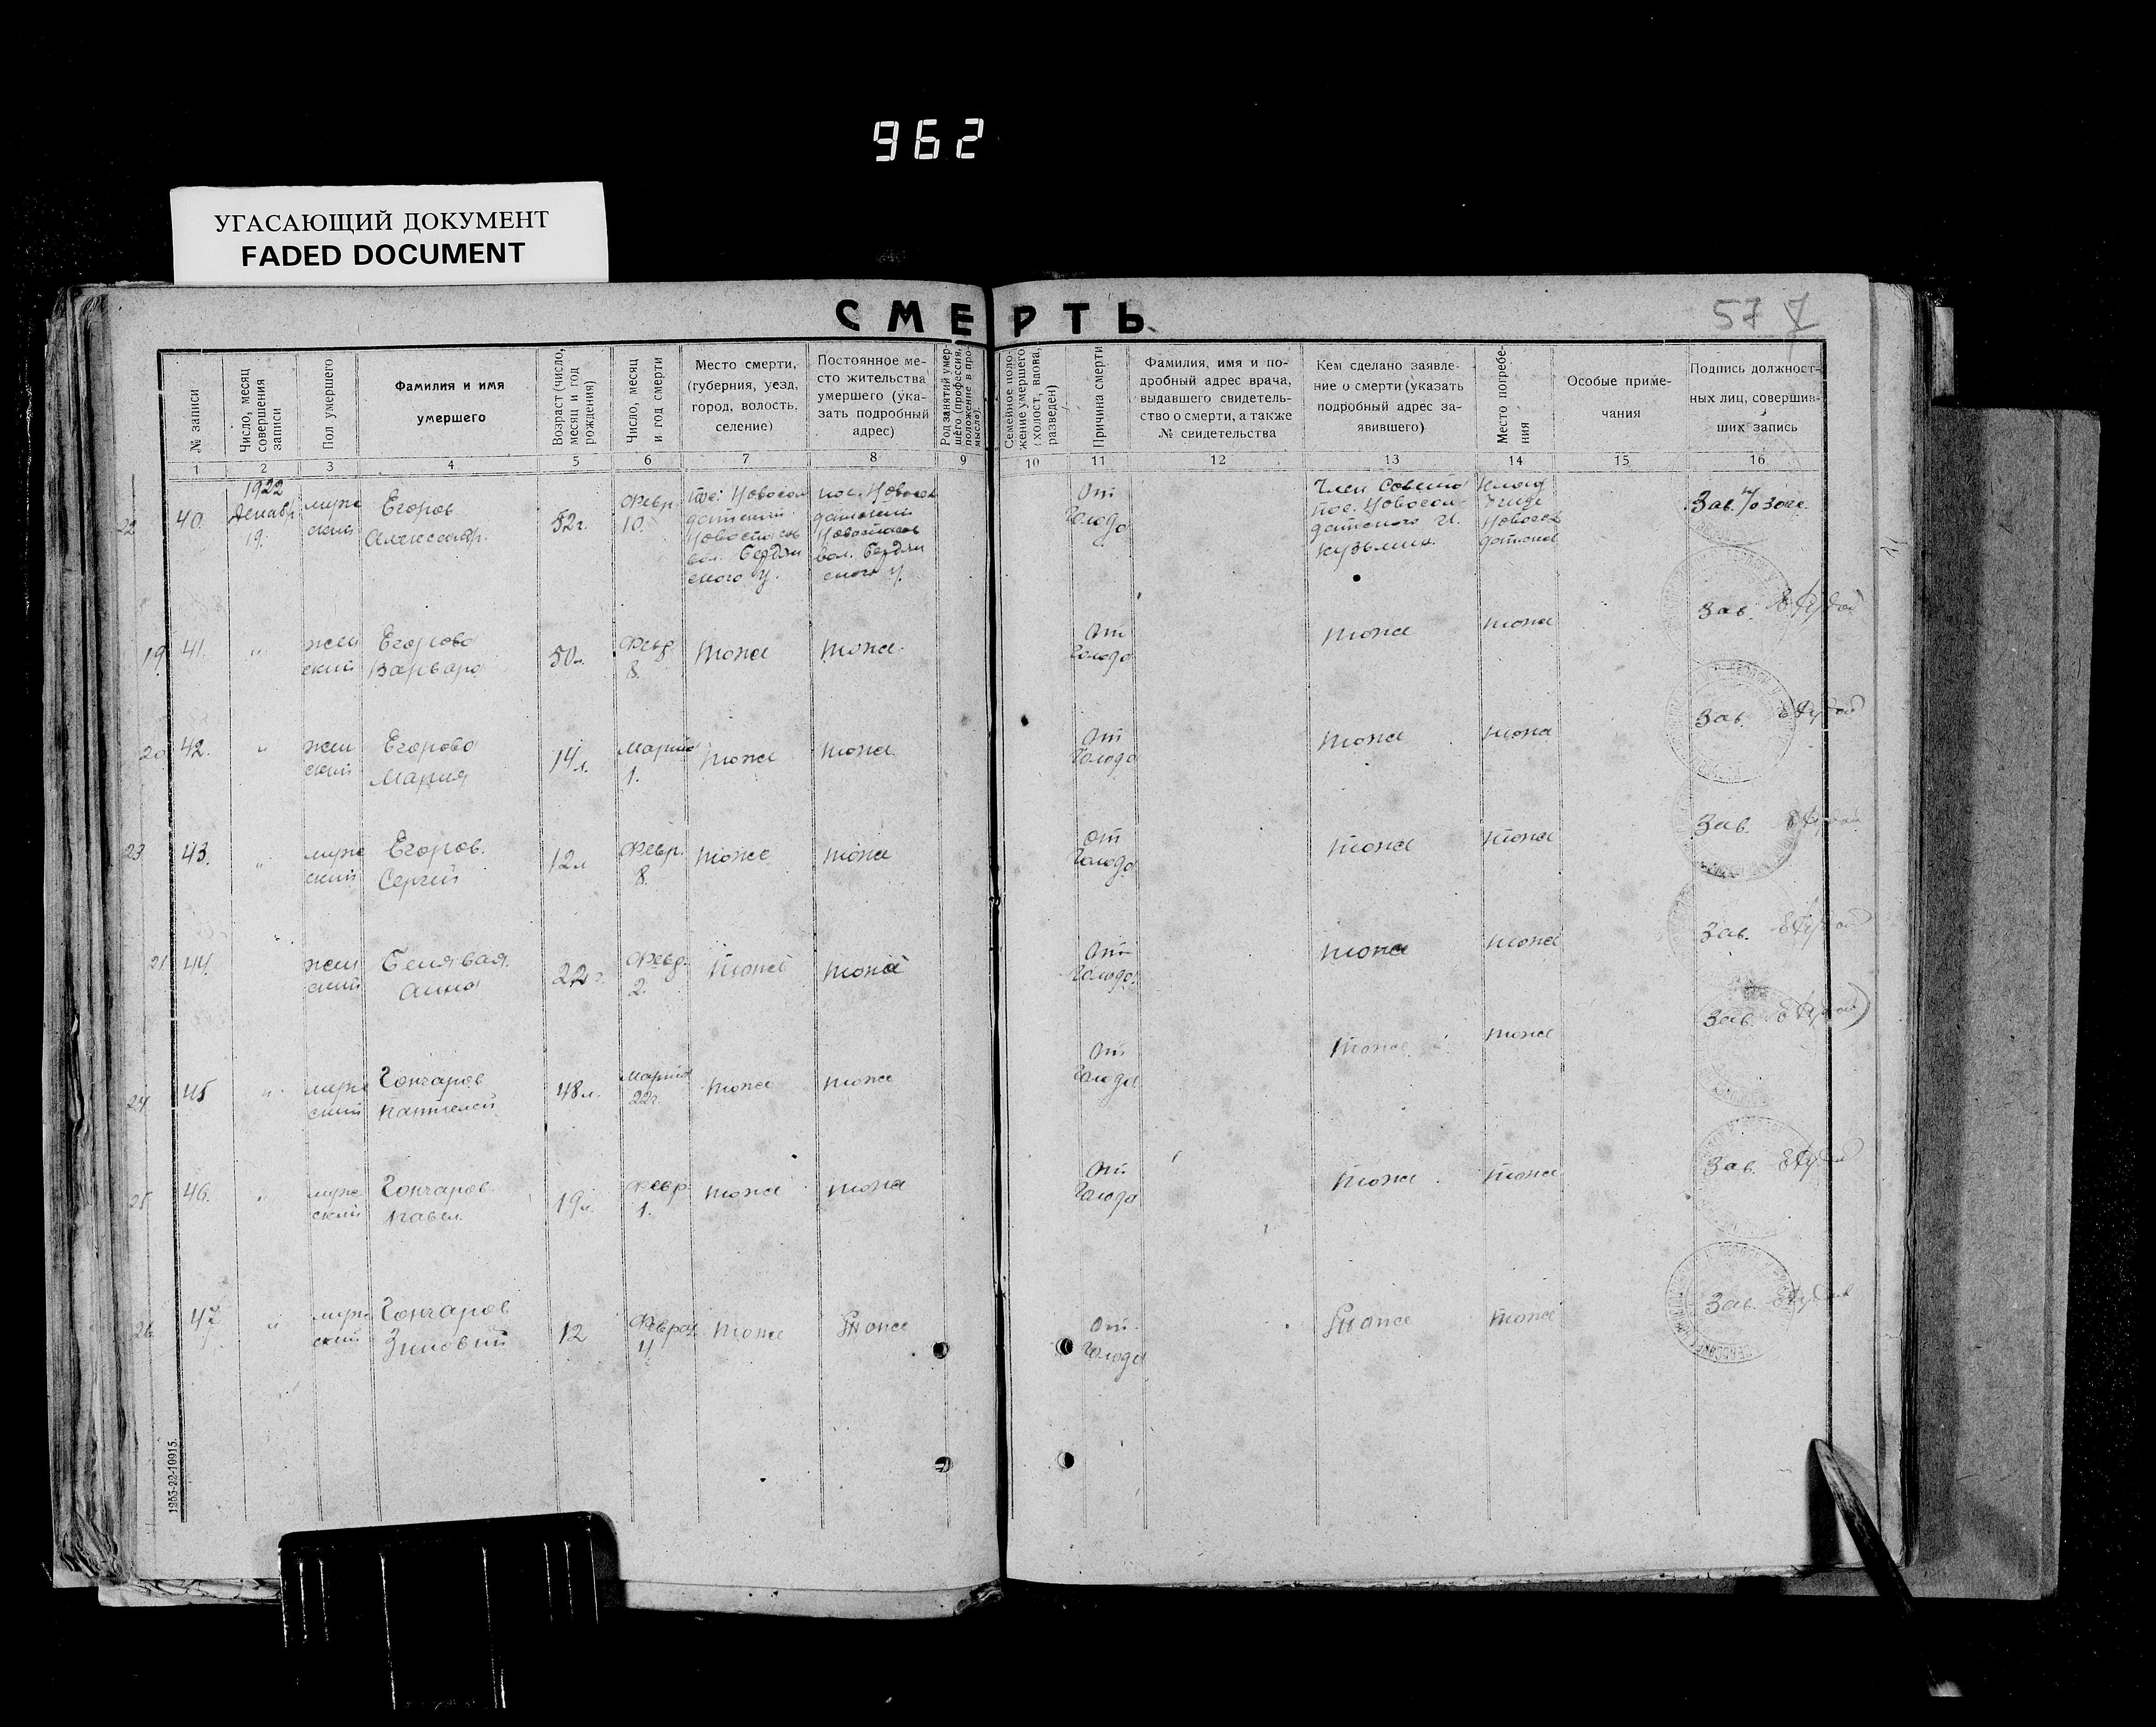 962
УГАСАЮЩИЙ ДОКУМЕНТ
FADED DOCUMENT
СМЕРТЬ
57
№ записи
Число, месяц совершения записи
Пол умершего
Фамилия и имя умершего
Возраст (число, месяц и год рождения)
Число, месяц и год смерти
Место смерти, (губерния, уезд, город, волость, селение)
Постоянное место жительства умершего (указать подробный адрес)
Род занятий умершего (профессия, положение в промысле).
Семейное положение умершего (холост, вдова, разведен)
Причина смерти
Фамилия, имя и подробный адрес врача, выдавшего свидетельство о смерти, а также № свидетельства
Кем сделано заявление о смерти (указать подробный адрес заявившего)
Место погребения
Особые примечания
Подпись должностных лиц, совершивших запись
1 2 3 4 5 6 7 8 9 10 11 12 13 14 15 16
22 40. 1922 Декабр 19. муж ский Егоров Александр. 52г. Февр. 10. пос. Новосол датский вол. Бердян ского у. пос. Новосол вол. Бердян ского у. От голода Член Совета пос. Новосол датского И. Кузьмин. Клад бище Зав.
19 41. " жен ский Егорова Варвара 50л. Февр. 8. тоже тоже От голода тоже тоже Зав.
20 42. " жен ский Егорова Мария 14л. Марта 1. тоже тоже От голода тоже тоже Зав.
23 43. " муж ский Егоров. Сергей 12л Февр. 8. тоже тоже От голода тоже тоже Зав.
21 44. жен ский Анна 22г. Февр. 2. тоже тоже От голода. тоже тоже Зав.
24 45 " муж ский Гончаров Пантелей 48л. Марта 22г. тоже тоже От голода тоже тоже Зав.
25 46. " муж ский Гончаров Павел. 19л. Февр 1. тоже тоже От голода тоже тоже Зав.
26 47. " муж ский Гончаров Зиновий 12 Феврал 4 тоже тоже От голода тоже тоже Зав.
1253-22-10915.